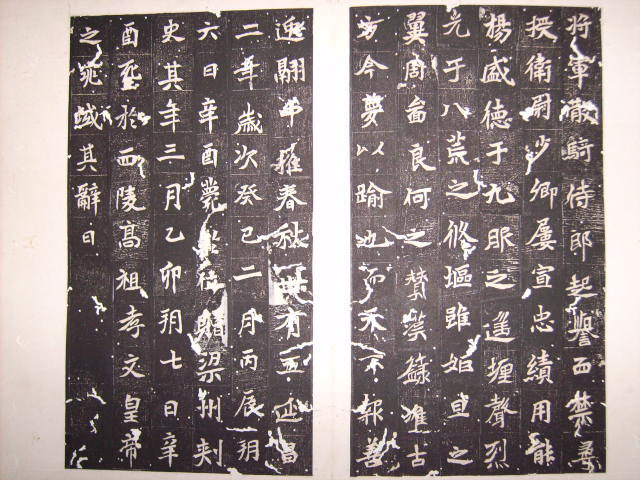 將軍散騎侍郎起譽西禁尋
授衛尉少卿屢宣忠績用能
揚盛德于九服之遙堙聲烈
光于八荒之脩堀雖姬旦之
翼周啚良何之贊漢籙准古
方今蔑以踰也而天不報善
逸翮中摧春秋卅有五延昌
二年歲次癸巳二月丙辰朔
六日辛酉薨贈梁州刾
史其年三月乙卯朔七日辛
酉窆於西陵高祖孝文皇帝
之兆域其辭曰